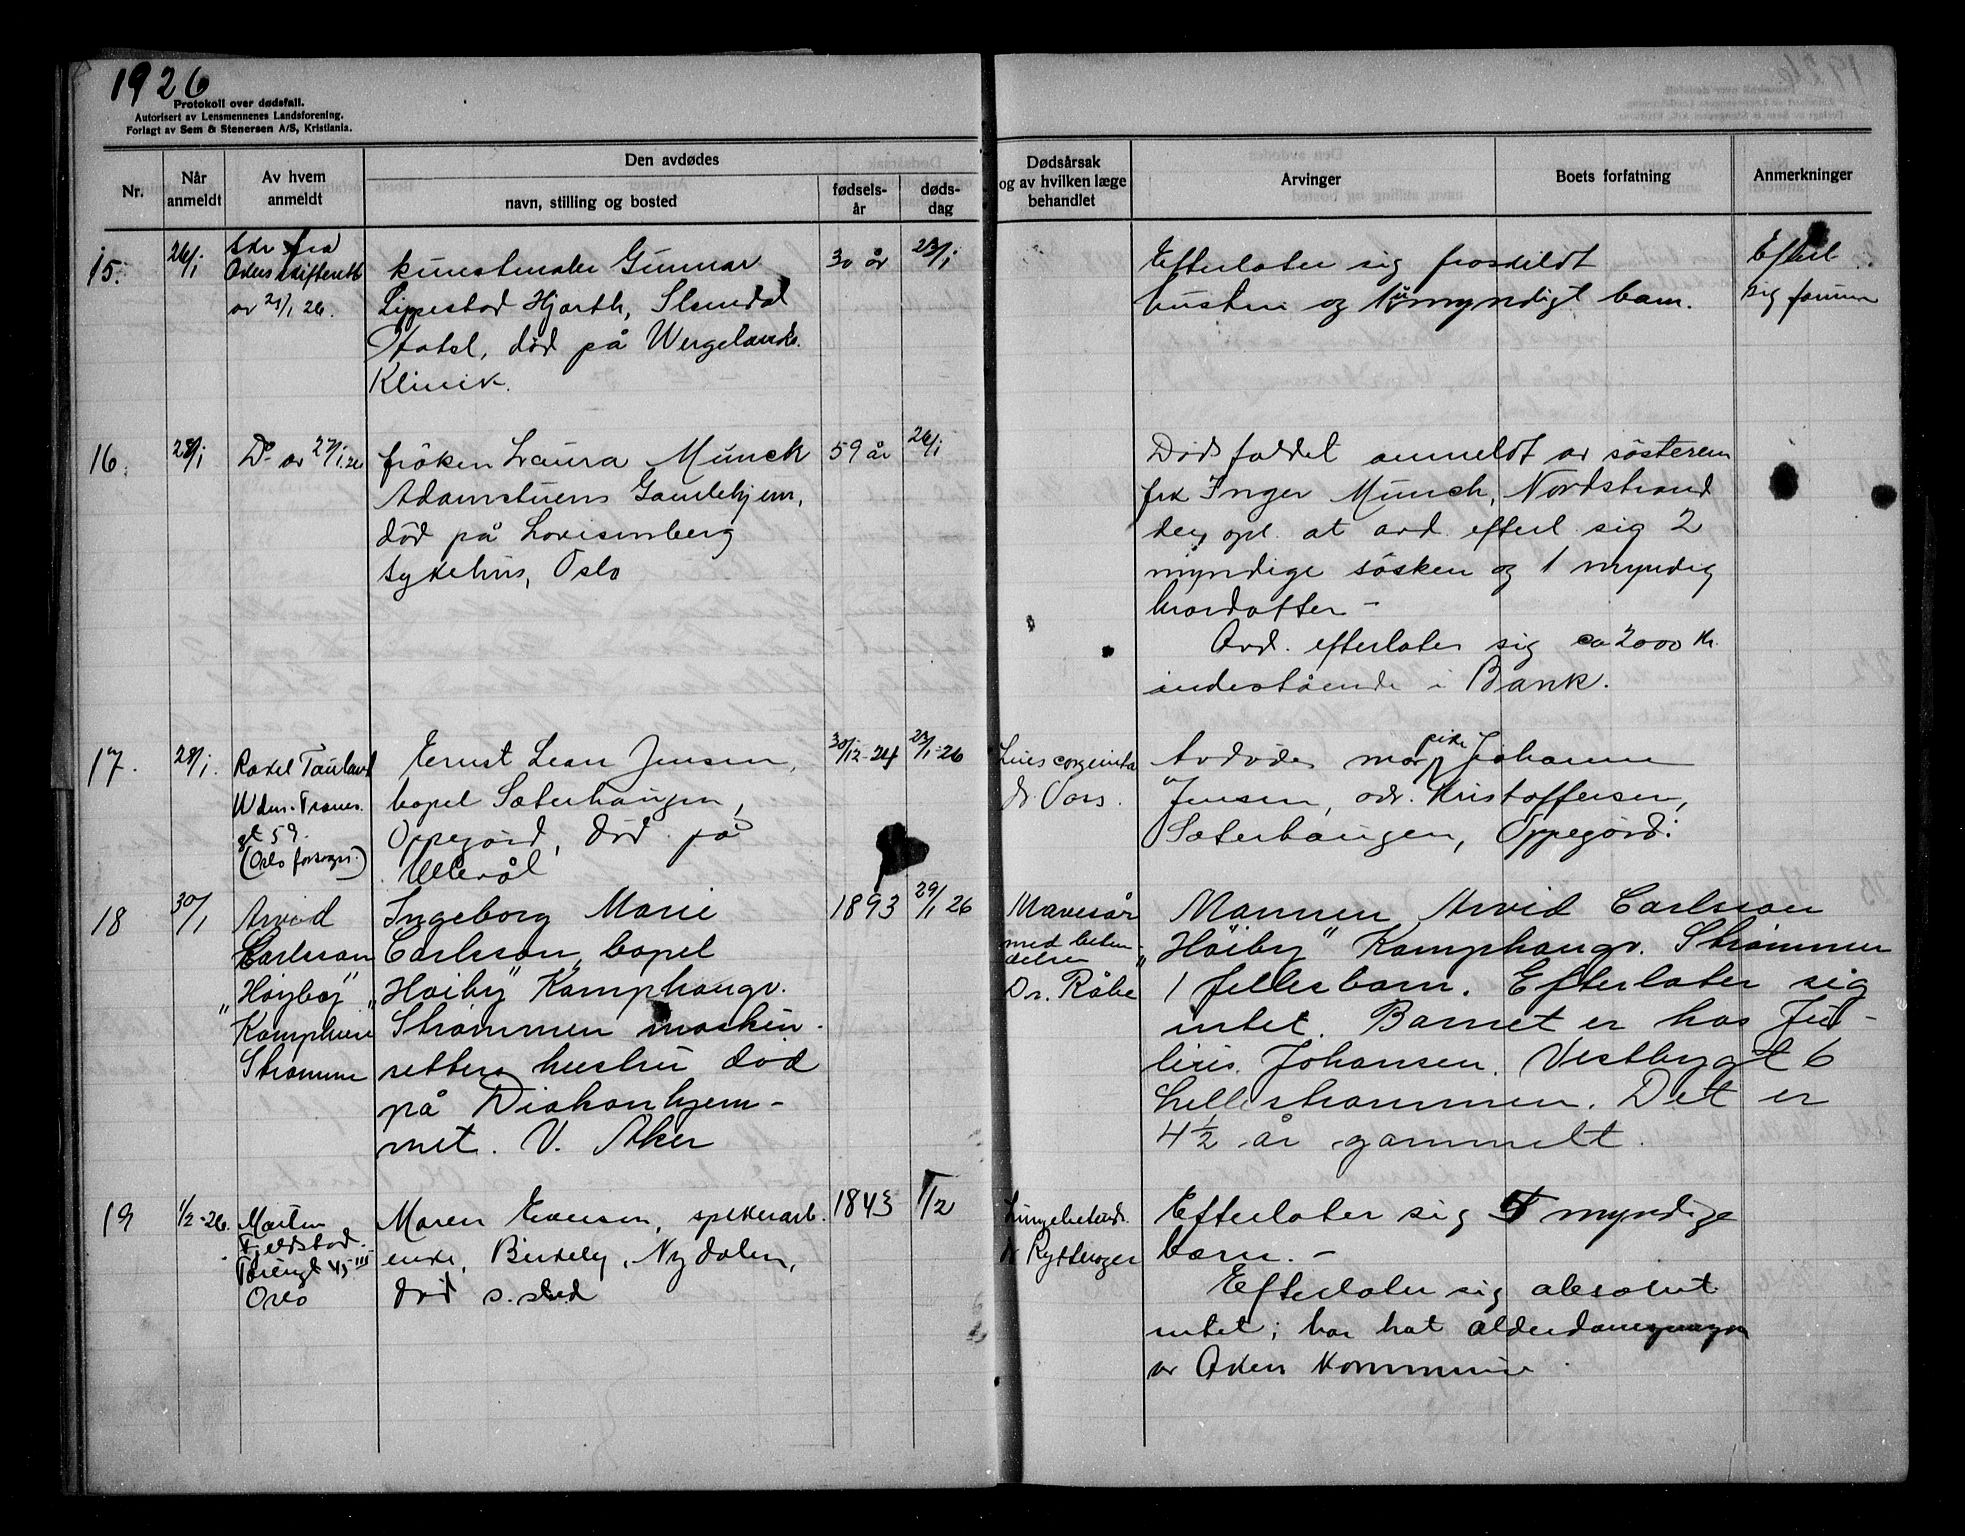 1926
Protokoll over dødsfall.
Autorisert av Lensmennenes Landsforening.
Forlagt av Sem & Stenersen A/S, Kristiania.
Nr.
Når anmeldt
Av hvem anmeldt
Den avdødes
navn, stilling og bosted
fødsels-år
døds-dag
Dødsårsak og av hvilken læge behandlet
Arvinger
Boets forfatning
Anmerkninger
15.
26/1
Skr fra
Akers skifterett
av 25/1 26.
kunstmaler Gunnar
Lippestad Hjorth, Slemdal
Hotel, død på Wergelands
Klinik.
30 år
23/1
Efterlater sig fraskildt
hustru og 1 umyndigt barn.
Efterl
sig formue
16.
28/1
Do av 27/1.26
frøken Laura Munch
Adamstuens Gamlehjem,
død på Lovisenberg
sykehus, Oslo
59 år
26/1
Dødsfaldet anmeldt av søsteren
frk Inger Munch, Nordstrand
der opl. at avd. efterl. sig 2
myndige søsken og 1 myndig
brordatter –
Avd. efterlater sig ca 2000 kr.
indestående i Bank.
17.
28/1.
Rakel
gt 59.
(Oslo forsorgs.)
Ernst Leon Jensen,
bopel Sæterhaugen,
Oppegård, død på
Ullevål
30/12-24
23/1-26
Lues congenita
dr.
Avdødes mor, pike Johanne
Jensen, adr. Kristoffersen,
Sæterhaugen, Oppegård.
18
30/1
Arvid
Carlsson
"Høybøy"
Strømmen
Ingeborg Marie
Carlsson, bopel
"Høiby" Kamphaugv.
Strømmen maskin-
setters hustru død
på Diakonhjem-
met. V. Aker
1893
29/1 26
Mavesår
med beten-
delse
Dr. Råbe
Mannen Arvid Carlsson
"Høiby" Kamphaugv. Strømmen
1 fellesbarn. Efterlater sig
intet. Barnet er hos Ju-
lius Johansen. Vestbygt 6
Lillestrømmen. Det er
4½ år gammelt.
19
1/2-26.
Martin
Fjeldstad
Tøiengt 45 III
Oslo
Maren Evensen, spikerarb.
enke, Birkely, Nydalen,
død s. sted
1843
1/2
Lungebetend.
dr Rytterager
Efterlater sig 5 myndige
barn. –
Efterlater sig absolut
intet; har hat alderdomspengen
av Akers Kommune.